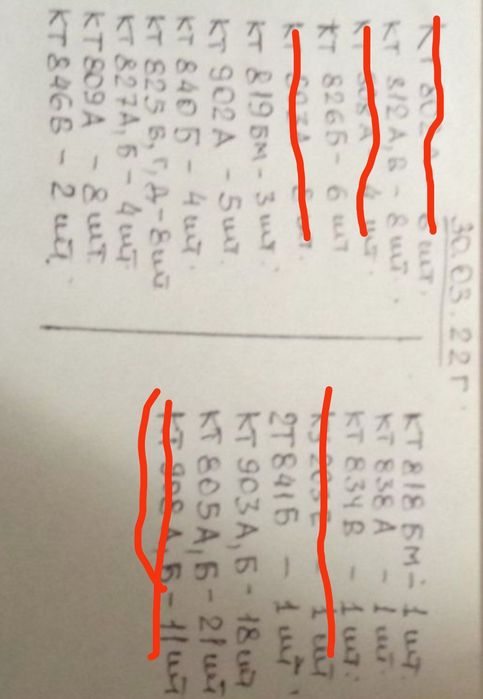 30.03.22 г.
КТ шт.
КТ 812А,В - 8 шт.
КТ 4 шт.
КТ 826Б - 6 шт
КТ шт.
КТ 819БМ - 3 шт.
КТ 902А - 5 шт.
КТ 840Б - 4 шт.
КТ 825Б,Г,Д - 8 шт
КТ 827А,Б - 4 шт
КТ 809А - 8 шт.
КТ 846Б - 2 шт.
КТ 818БМ - 1 шт.
КТ 838А - 1 шт.
КТ 834В - 1 шт.
1 шт
2Т841Б - 1 шт.
КТ 903А,Б - 18 шт
КТ 805А,Б - 21 шт
КТ 908А,Б - 11 шт